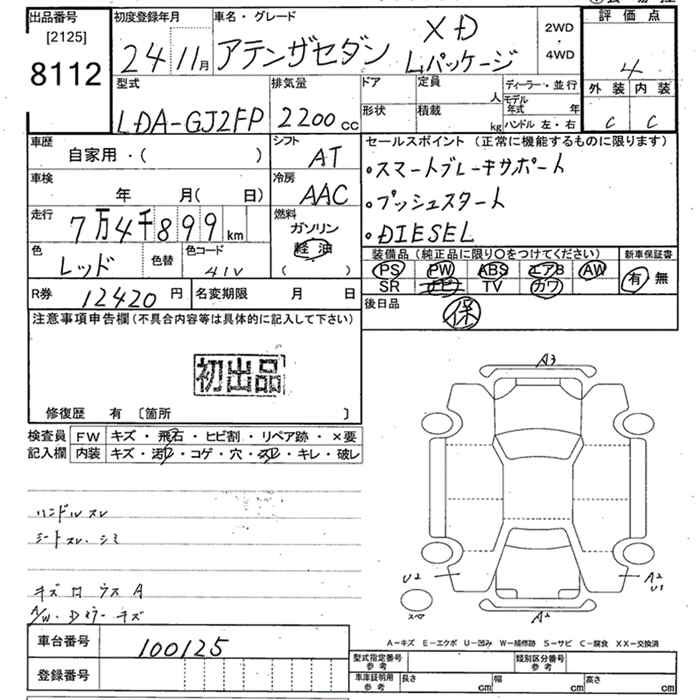 出品番号
[2125]
8112
初度登録年月
24 11月
車名・グレード
アテンザセダン
XD
Lパッケージ
2WD
・
4WD
評価点
4
外装 内装
C C
型式
LDA-GJ2FP
排気量
2200cc
ドア
形状
定員
人
積載
kg
ディーラー・並行
モデル年式 年
ハンドル 左・右
車歴
自家用・( )
シフト
AT
車検
年 月( 日)
冷房
AAC
走行
7万4千899km
燃料
ガソリン
軽油
( )
色
レッド
色替
色コード
41V
R券
12420円
名変期限 月 日
セールスポイント(正常に機能するものに限ります)
・スマートブレーキサポート
・プッシュスタート
・DIESEL
装備品(純正品に限り○をつけてください)
新車保証書
PS PW ABS エアB AW
SR ナビ TV カワ
有・無
後日品
保
注意事項申告欄(不具合内容等は具体的に記入して下さい)
初出品
修復歴 有 〔箇所 〕
検査員記入欄
FW キズ・飛石・ヒビ割・リペア跡・×要
内装 キズ・汚レ・コゲ・穴・スレ・キレ・破レ
ハンドルスレ
シートスレ・シミ
A/W・Dミラーキズ
A3
U2
A2
U1
スペア
A2
A-キズ E-エクボ U-凹み W-補修跡 S-サビ C-腐食 XX-交換済
車台番号
100125
登録番号
型式指定番号 参考
類別区分番号 参考
車庫証明用 参考
長さ cm
幅 cm
高さ cm